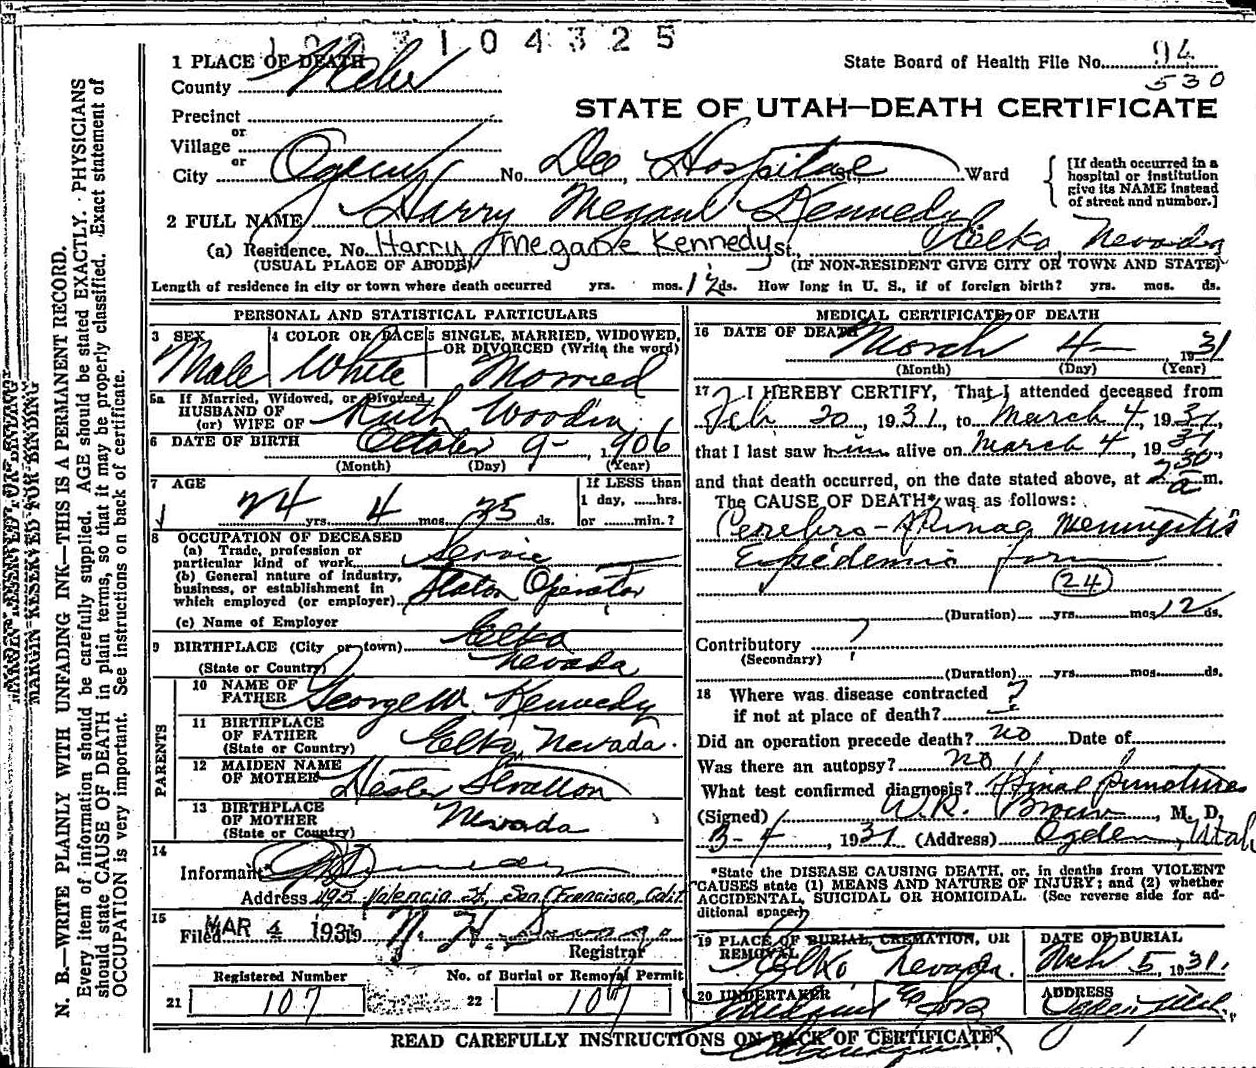 104325
1 PLACE OF DEATH
County Weber
State Board of Health File No. 94
530
STATE OF UTAH—DEATH CERTIFICATE
Precinct
or
Village
or
City Ogden No. Dee Hospital St., Ward
[If death occurred in a hospital or institution give its NAME instead of street and number.]
2 FULL NAME Harry Megane Kennedy
(a) Residence. No. Harry Megane Kennedy St. Elko, Nevada
(USUAL PLACE OF ABODE) (IF NON-RESIDENT GIVE CITY OR TOWN AND STATE)
Length of residence in city or town where death occurred yrs. mos. 12 ds. How long in U. S., if of foreign birth? yrs. mos. ds.
PERSONAL AND STATISTICAL PARTICULARS
3 SEX
Male
4 COLOR OR RACE
White
5 SINGLE, MARRIED, WIDOWED, OR DIVORCED (Write the word)
Married
5a If Married, Widowed, or Divorced
HUSBAND OF
(or) WIFE OF Ruth Woodin
6 DATE OF BIRTH October 9- , 1906
(Month) (Day) (Year)
7 AGE
24 yrs. 4 mos. 25 ds.
If LESS than
1 day, ......hrs.
or ......min.?
8 OCCUPATION OF DECEASED
(a) Trade, profession or
particular kind of work Service
(b) General nature of industry,
business, or establishment in
which employed (or employer) Station Operator
(c) Name of Employer
9 BIRTHPLACE (City or town) Elko
(State or Country) Nevada
PARENTS
10 NAME OF
FATHER George W. Kennedy
11 BIRTHPLACE
OF FATHER
(State or Country) Elko, Nevada.
12 MAIDEN NAME
OF MOTHER Hester Stratton
13 BIRTHPLACE
OF MOTHER
(State or Country) Nevada
14
Informant
Address 495 Valencia St, San Francisco, Calif.
15
Filed MAR 4 1931 19
Registrar
Registered Number
21 107
No. of Burial or Removal Permit
22 107
MEDICAL CERTIFICATE OF DEATH
16 DATE OF DEATH March 4 , 1931
(Month) (Day) (Year)
17 I HEREBY CERTIFY, That I attended deceased from
Feb 20, 1931, to March 4, 1931,
that I last saw him alive on March 4, 1931
and that death occurred, on the date stated above, at 230 a m.
The CAUSE OF DEATH* was as follows:
Cerebro-Spinal Meningitis
Epidemic form
(24)
(Duration) yrs. mos. 12 ds.
Contributory ?
(Secondary)
(Duration) yrs. mos. ds.
18 Where was disease contracted
if not at place of death? ?
Did an operation precede death? no Date of
Was there an autopsy? no
What test confirmed diagnosis? Spinal punctures
(Signed) W.R. Brown, M. D.
3-4, 1931 (Address) Ogden, Utah
*State the DISEASE CAUSING DEATH, or, in deaths from VIOLENT
CAUSES state (1) MEANS AND NATURE OF INJURY; and (2) whether
ACCIDENTAL, SUICIDAL OR HOMICIDAL. (See reverse side for ad-
ditional space.)
19 PLACE OF BURIAL, CREMATION, OR
REMOVAL
Elko Nevada.
DATE OF BURIAL
Mch 5, 1931.
20 UNDERTAKER
ADDRESS
Ogden Utah.
READ CAREFULLY INSTRUCTIONS ON BACK OF CERTIFICATE
MARGIN RESERVED FOR BINDING
N. B.—WRITE PLAINLY WITH UNFADING INK—THIS IS A PERMANENT RECORD.
Every item of information should be carefully supplied. AGE should be stated EXACTLY. PHYSICIANS
should state CAUSE OF DEATH in plain terms, so that it may be properly classified. Exact statement of
OCCUPATION is very important. See instructions on back of certificate.